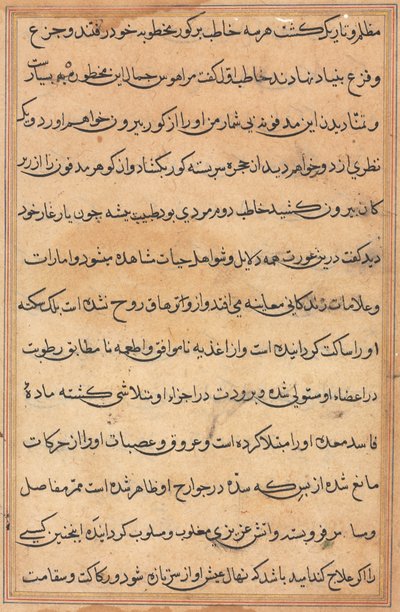 مظلم و تاریک گشت هر سه خاطب بر گور مخطوبه خود رفتند و جزع
و فزع بنیاد نهادند خاطب اول گفت مرا هوس جمال این مخطوبه بسیار است
و تا دیدن این مدفونه بی شمار من او را از گور بیرون خواهم آورد و یک
نظری ازو خواهم دید از حجره سر بسته گور بکشاد و آن گوهر مدفون را از زیر
کان بیرون کشید خاطب دوم مردی بود طبیب پیشه چون یار غار خود
دید گفت درین عورت همه دلایل و شواهل حیات مشاهده میشود و امارات
و علامات زندگانی معاینه می افتد و ازو اثر ازهاق روح نشده است بلک سکته
او را ساکت گردانیده است و از اغذیه ناموافق و اطعمه نا مطابق رطوبت
در اعضاء او مستولی شده و برودت در اجزاء او متلاشی گشته مادهٔ
فاسد معده او را ممتلا کرده است و عروق و عصبات او را از حرکات
مانع شده از بس که سده در جوارح او ظاهر شده است ممر مفاصل
و مسام فروبسته و آتش غریزی مغلوب و مسلوب گردانیده اینچنین کسی
را اگر علاج کنند امید باشد که نهال عیش او از سر تازه شود و رکاکت و سقامت